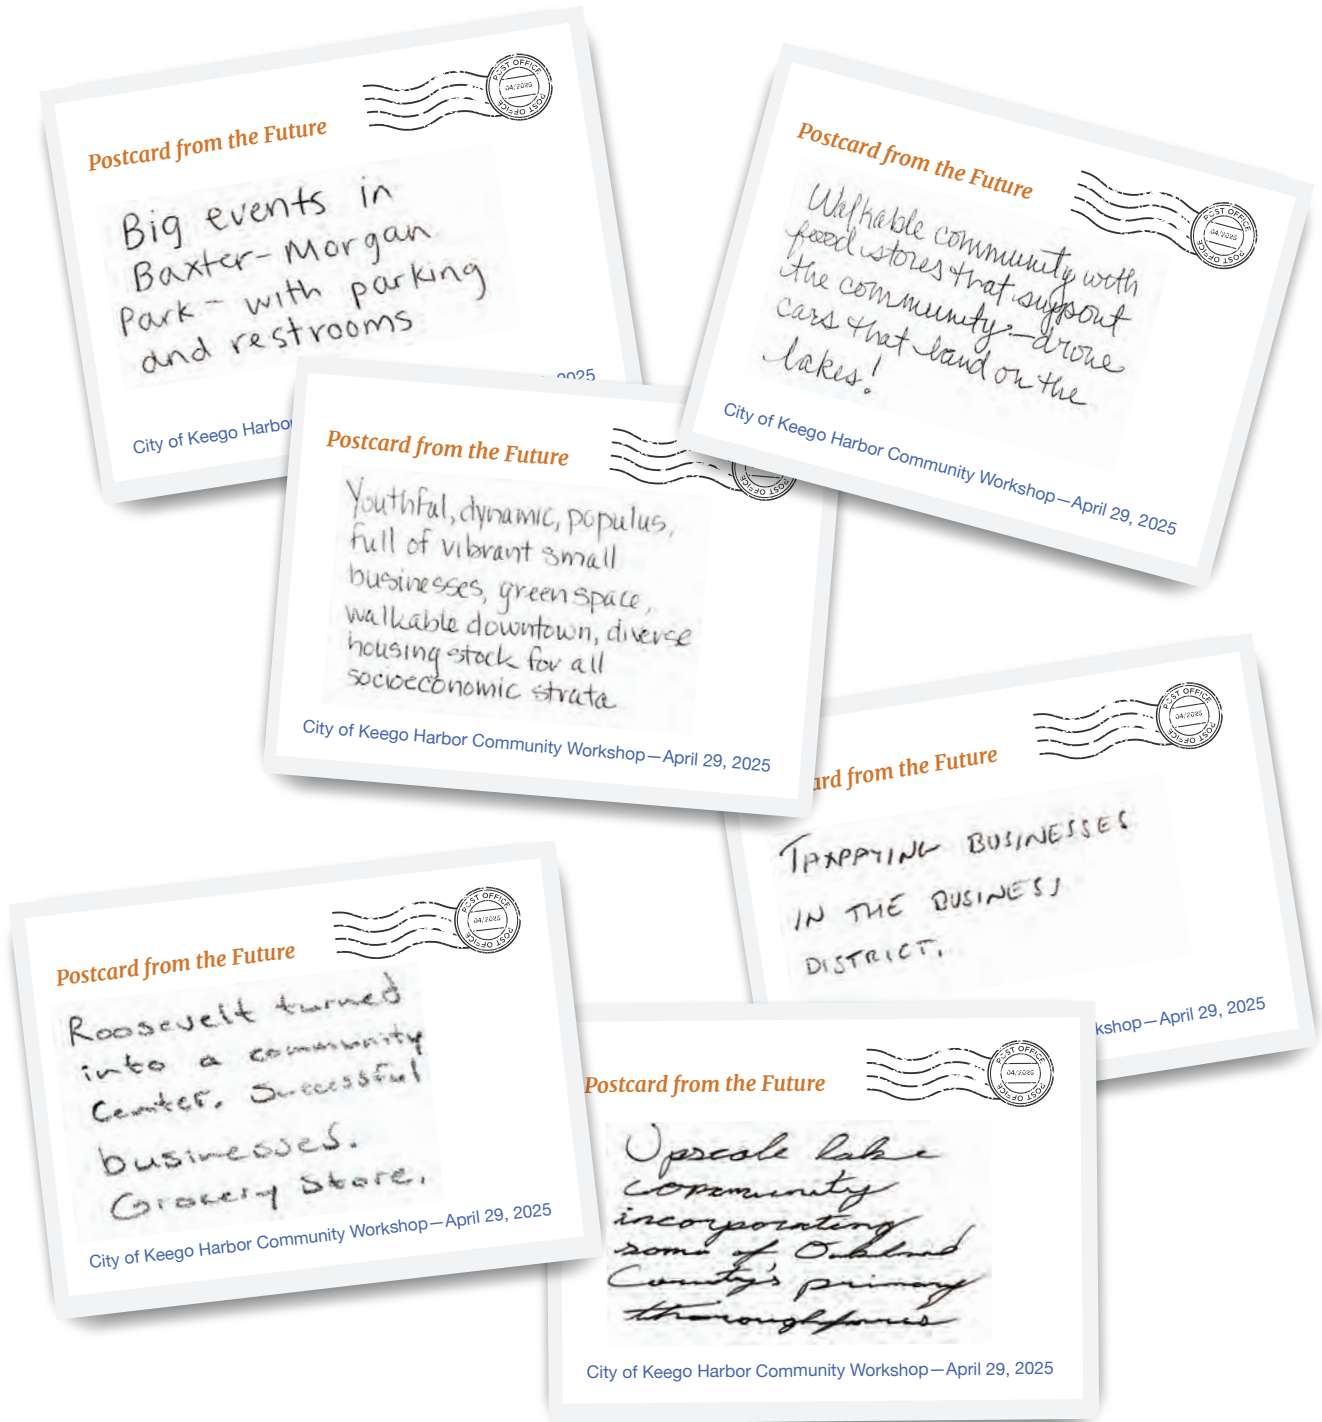 POST OFFICE
04/2025
POST OFFICE
Postcard from the Future
Big events in
Baxter-Morgan
Park - with parking
and restrooms
2025
City of Keego Harbor
POST OFFICE
04/2025
POST OFFICE
Postcard from the Future
Walkable community with
food stores that support
the community - drone
cars that land on the
lakes!
City of Keego Harbor Community Workshop—April 29, 2025
Postcard from the Future
POST OFFICE
Youthful, dynamic, populus,
full of vibrant small
businesses, greenspace,
walkable downtown, diverse
housing stock for all
socioeconomic strata
City of Keego Harbor Community Workshop—April 29, 2025
POST OFFICE
04/2025
POST OFFICE
ard from the Future
TAXPAYING BUSINESSES
IN THE BUSINESS
DISTRICT.
kshop—April 29, 2025
POST OFFICE
04/2025
POST OFFICE
Postcard from the Future
Roosevelt turned
into a community
Center. Successful
businesses.
Grocery Store.
City of Keego Harbor Community Workshop—April 29, 2025
POST OFFICE
04/2025
POST OFFICE
Postcard from the Future
Upscale lake
community
incorporating
some of Oakland
County's primary
thoroughfares
City of Keego Harbor Community Workshop—April 29, 2025